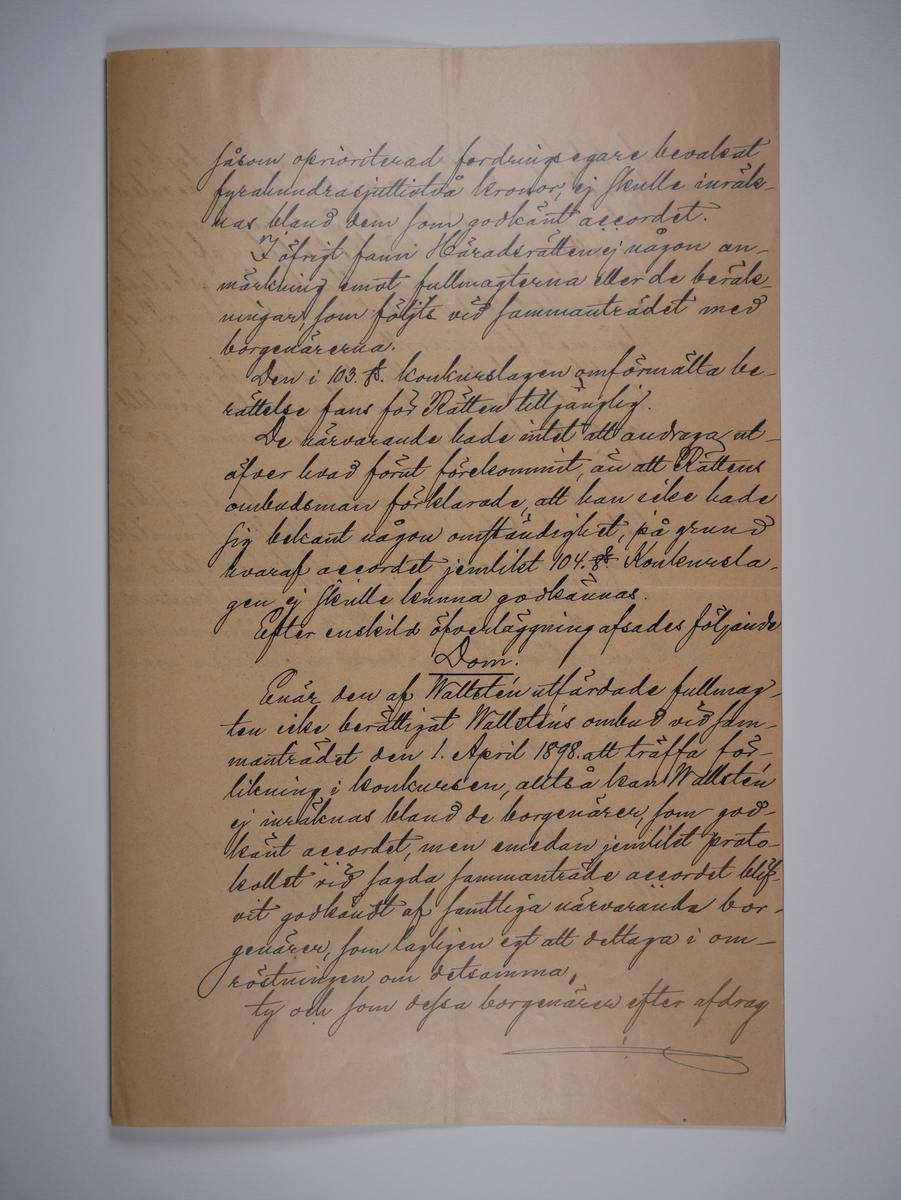 såsom oprioriterad fordringsegare bevakat
fyrahundrasjuttiotvå kronor, ej skulle inräk-
nas bland dem som godkänt accordet.
I öfrigt fann Häradsrätten ej någon an-
märkning emot fullmagterna eller de beräk-
ningar, som följts vid sammanträdet med
borgenärerna.
Den i 103. §. konkurslagen omförmälta be-
rättelse fans för Rätten tillgänglig.
De närvarande hade intet att andraga ut-
öfver hvad förut förekommit, än att Rättens
ombudsman förklarade, att han icke hade
sig bekant någon omständighet, på grund
hvaraf accordet jemlikt 104. §. Konkursla-
gen ej skulle kunna godkännas.
Efter enskild öfverläggning afsades följande
Dom.
Enär den af Wallstén utfärdade fullmag-
ten icke berättigat Wallsténs ombud vid sam-
manträdet den 1. April 1898. att träffa för-
likning i konkursen, alltså kan Wallstén
ej inräknas bland de borgenärer, som god-
känt accordet, men emedan jemlikt proto-
kollet vid sagda sammanträde accordet blif-
vit godkändt af samtliga närvarande bor-
genärer, som lagligen egt att deltaga i om-
röstningen om detsamma,
ty och som dessa borgenärer efter afdrag